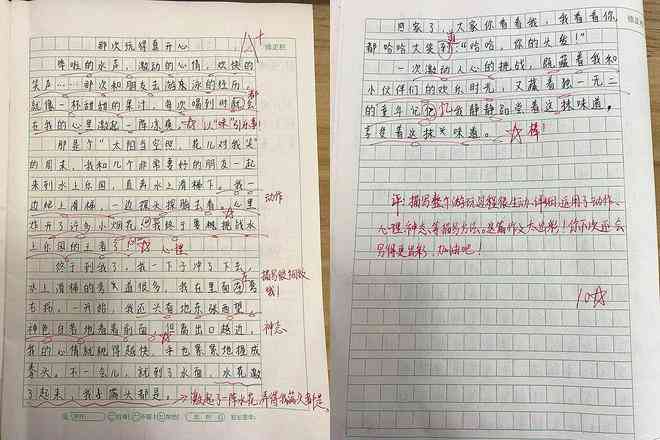 那次玩得真开心
A+
哗啦的水声，激动的心情，欢快的
笑声……那次和朋友去游泳的经历，
就像一杯甜甜的果汁，每次喝到时都会
在我的心里激起一阵凉爽。
那是个“太阳当空照，花儿对我笑”
的周末，我和几个非常要好的朋友一起
来到水上乐园，直奔水上滑梯下。我一
边爬上滑梯，一边探头探脑去看。心里
动作
炸开了许多小烟花，我终于要挑战水
上乐园的王者了！
心理
终于到我了，我一下子冲了下去，
水上滑梯的弯道很多，我在里面左弯
描写很细致
哦！
右拐，一开始，我还头有地东张西望，
神色自若地看着前面，但离出口越近，
神态
我的心情就跳得越快，手也紧紧地握成
拳头。不一会儿，就到了水面，水花激
了起来，我满头都是，
激起了一阵水花，弄得我满头都是
回家了，大家你看看我，我看看你，
都哈哈大笑道：“哈哈，你的头发！”
一次激动人心的挑战，隐藏着我和
小伙伴们的欢乐时光，又藏着独一无二
的童年记忆，我静静品尝着这抹味道，
享受着这抹味道。
棒！
评：描写整个游玩过程很生动、详细，运用了动作、
心理、神态等描写方法。这篇作文太出彩！你下次还会
写得更出彩，加油吧！
10